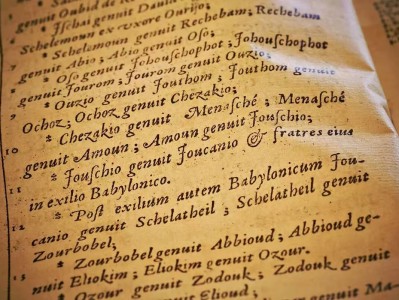 genuit Oubid de
* Jſchai genuit Dauid
Schelemoun ex vxore Ourijo;
7 * Schelemoun genuit Rechebam; Rechebam
genuit Abio; Abio genuit Oſo;
8 * Oſo genuit Johouſchophot; Johouſchophot
genuit Jourom; Jourom genuit Ouzio;
9 * Ouzio genuit Jouthom; Jouthom genuit
Ochoz; Ochoz genuit Chezakio;
10 * Chezakio genuit Menaſché; Menaſché
genuit Amoun; Amoun genuit Jouſchio;
11 * Jouſchio genuit Joucanio & fratres eius
in exilio Babylonico.
12 * Poſt exilium autem Babylonicum Jou-
canio genuit Schelatheil; Schelatheil genuit
Zourbobel;
13 * Zourbobel genuit Abbioud; Abbioud ge-
nuit Eliokim; Eliokim genuit Ozour.
* Ozour genuit Zodouk; Zodouk genuit
genuit Elioud;